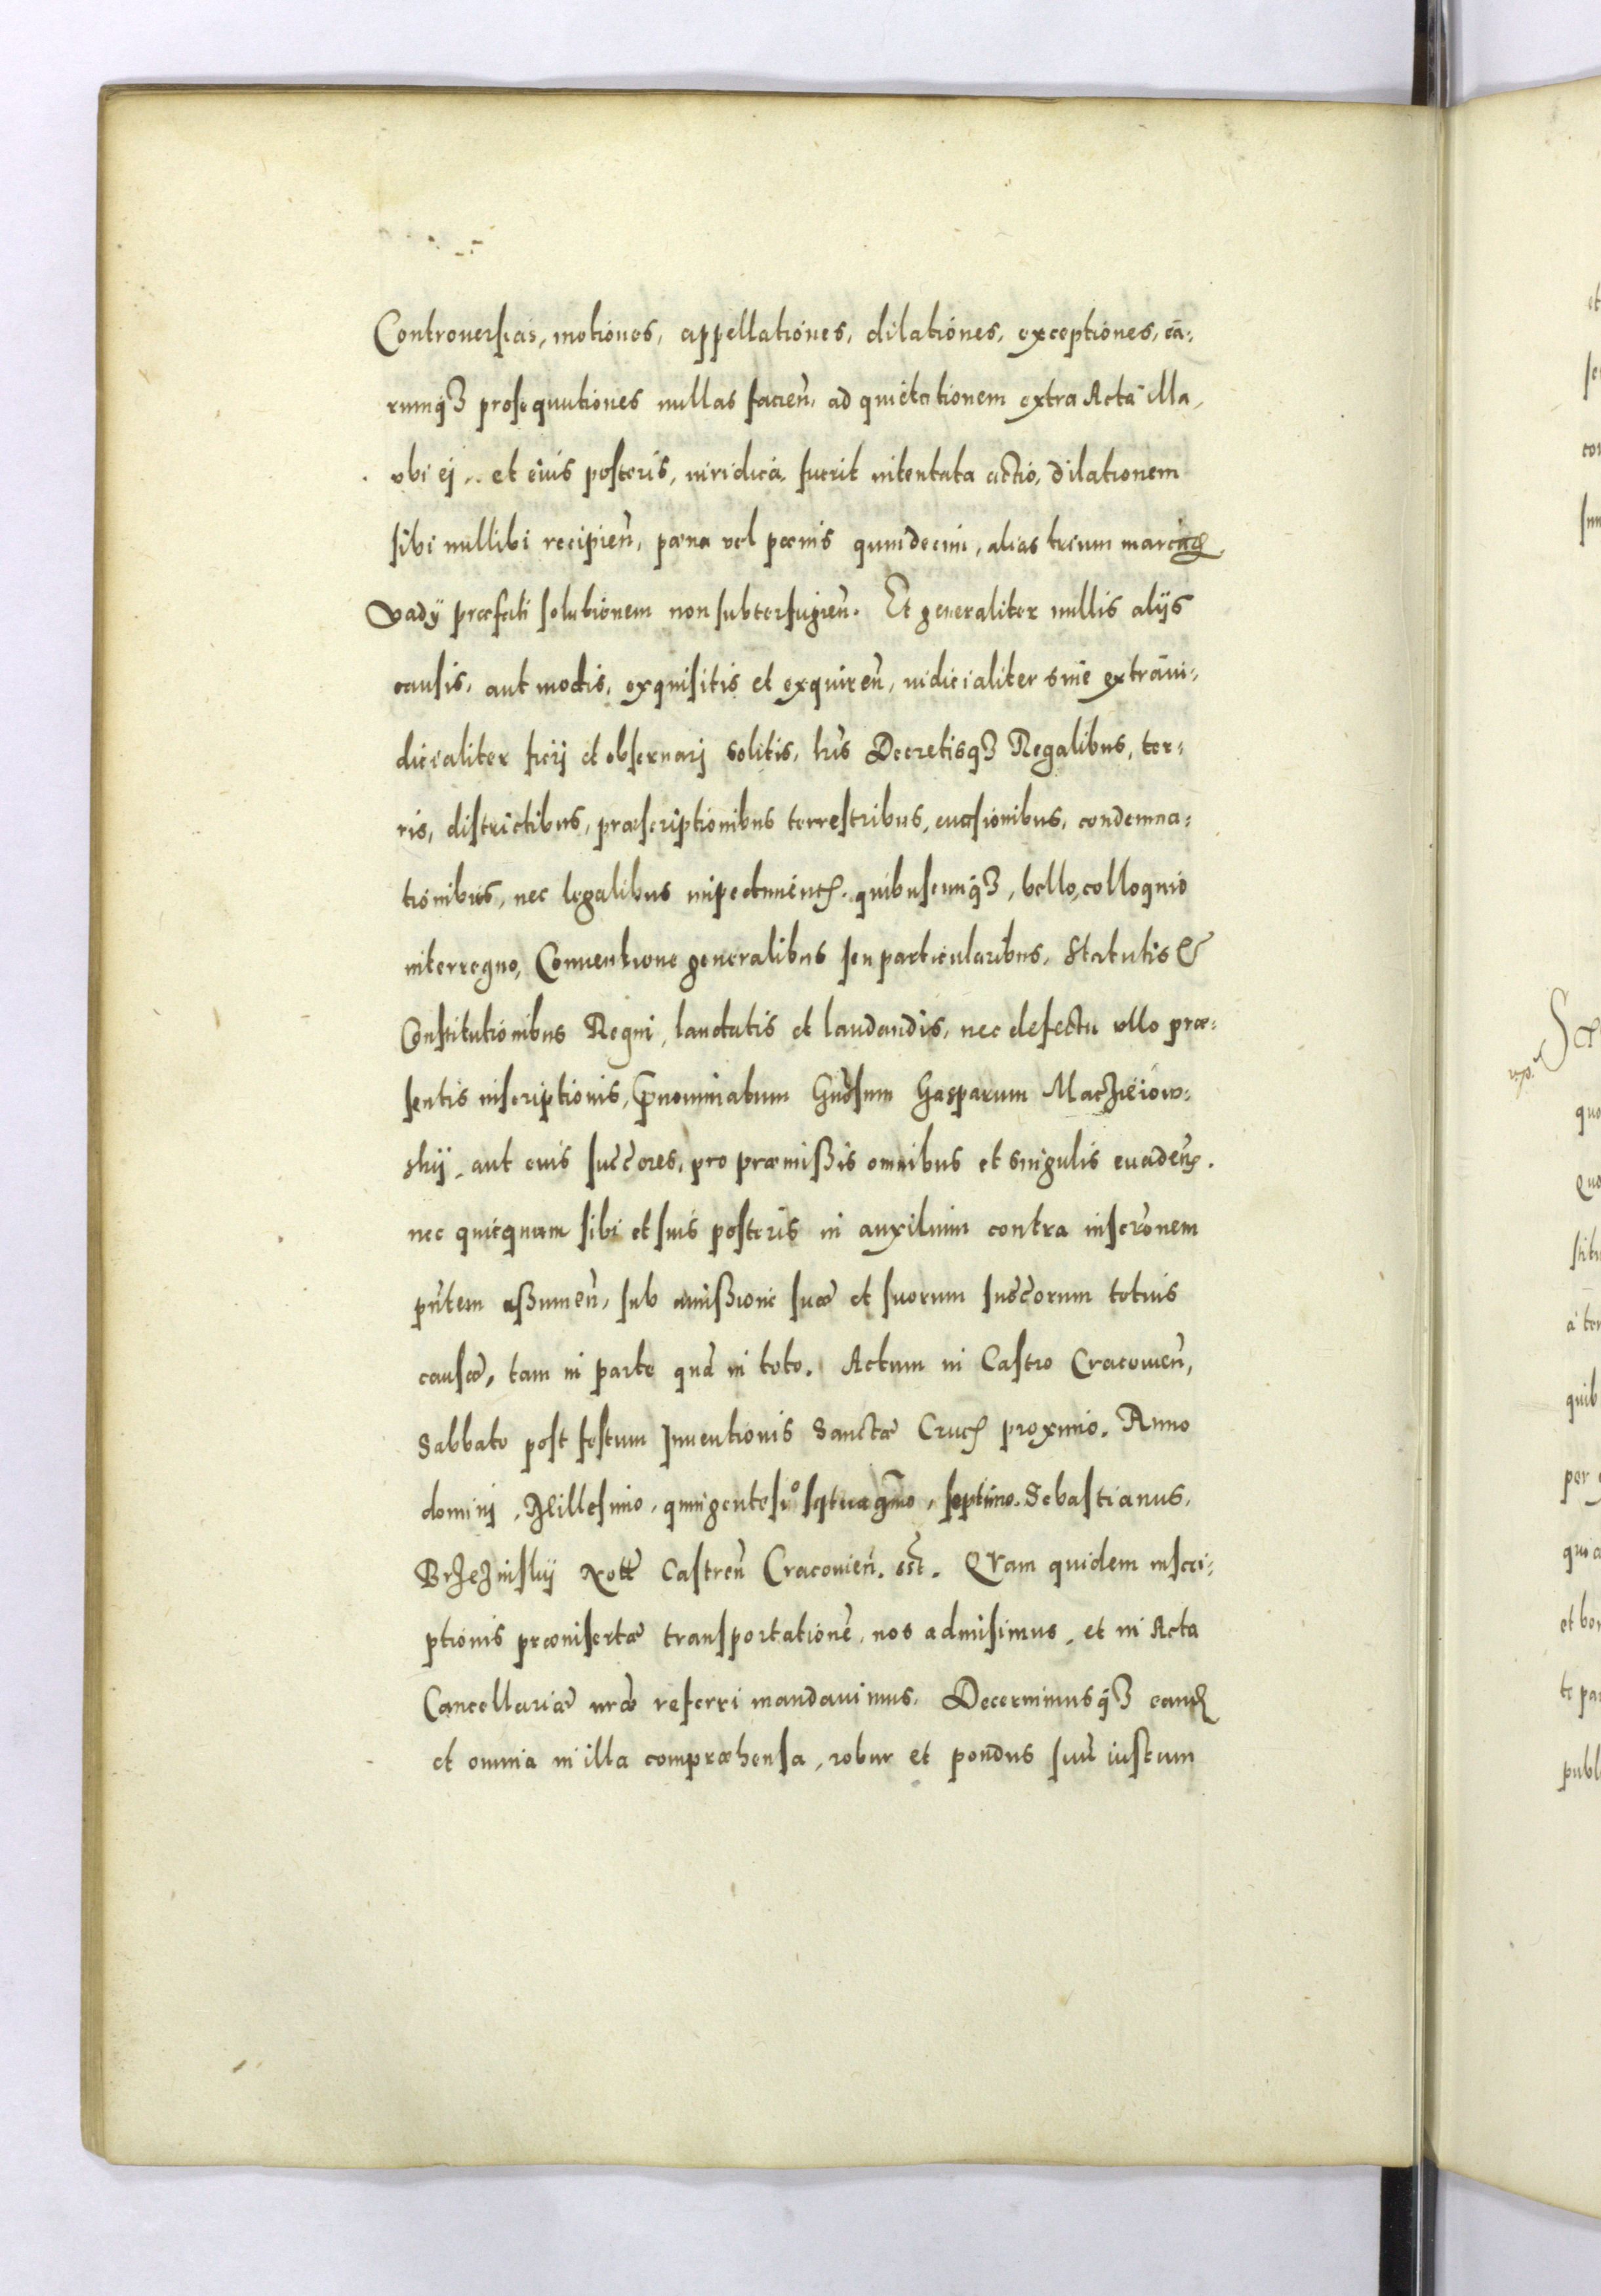 Controuersias, motiones, appellationes, dilationes, exceptiones, eā:
rumq3 prosequutiones nullas facieñ, ad quietationem extra Acta illa,
vbi ej et eius posteris, iuridica fuerit intentata actio, dilationem
sibi nullibi recipieñ, pœna vel pœnis quindecim, alias trium marcarꝝ
Vadÿ præfati solutionem non subterfugieñ. Et generaliter nullis alijs
causis, aut modis, exquisitis et exquireñ, iudicialiter siue extraiu:
dicialiter fierj et obseruarj solitis, lrīs Decretisq3 Regalibus, ter:
ris, districtibus, præscriptionibus terrestribus, euasionibus, condemna:
tionibus, nec legalibus impedimentꝭ quibuscunq3, bello, colloquio
interregno, Conuentione generalibus seu particularibus, Statutis &
Constitutionibus Regni, laudatis et laudandis, nec defectu vllo præ:
sentis inscriptionis, p̄nominatum Gñdsum Gasparum Macieiow:
skij, aut eius succ̄ores, pro præmißis omnibus et singulis euadeñ.
nec quicquam sibi et suis posteris in auxilium contra inscr̄onem
pñtem aßumeñ, sub amißione suæ et suorum succ̄orum totius
causæ, tam in parte quā in toto. Actum in Castro Cracouieñ,
Sabbato post festum Inuentionis Sanctæ Crucꝭ proximo. Anno
dominj, Millesimo, quingentesi° septuagm̄o, septimo. Sebastianus,
Brzezinskij Nott̄ Castreñ Cracouieñ. sst. Qr̄am quidem inscri:
ptionis præinsertæ transportationē, nos admisimus, et in Acta
Cancellariæ nr̄æ referri mandauimus. Decernimusq3 eandꝭ
et omnia in illa compræhensa, robur et pondus suū iustum